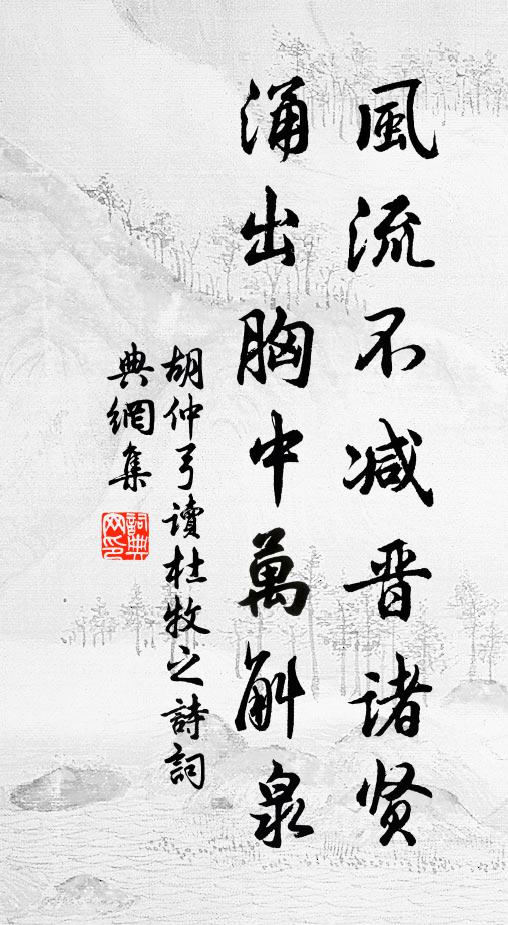 風流不减晋诸贤
涌出胸中萬斛泉
胡仲弓讀杜牧之詩詞
典網集
詞典網印